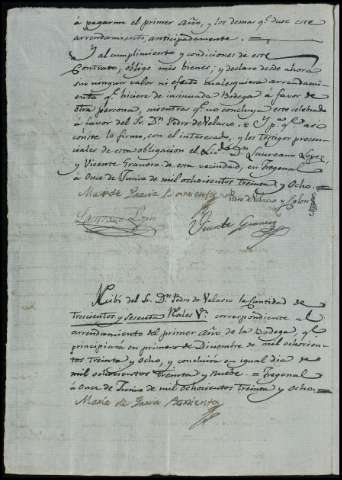 á pagarme el primer Año, y los demas q.e dure este
arrendamiento, anticipadamente. =
Y al cumplimiento y condiciones de este
Contrato, obligo mis bienes; y declaro desde ahora
sin ningun valor ni efecto qualesquiera arrendami-
ento q.e hiciere de la Bodega á favor de
otra persona, mientras q.e no concluya este celebrado
á favor del S.r D.n Pedro de Velasco. = Y p.a q.e asi
conste lo firmo, con el interesado, y los testigos presenc-
iales de esta obligacion el Lic.do D.n Laureano Lopez
y Vicente Granero de esta vecindad, en Fregenal
á Once de Junio de mil ochocientos treinta y Ocho. =
María de Gracia Barrientos Pedro de Velasco y Colon
Laureano Lopez Vicente Granero
Recibí del S.r D.n Pedro de Velasco la Cantidad de
Trescientos y sesenta Reales V.n correspondiente al
arrendamiento del primer Año de la Bodega, q.e
principiará en primero de Diciembre de mil ochocien-
tos treinta y ocho, y concluirá en igual dia de
mil ochocientos treinta y Nueve = Fregenal
á Once de Junio de mil ochocientos treinta y Ocho. =
María de Gracia Barrientos